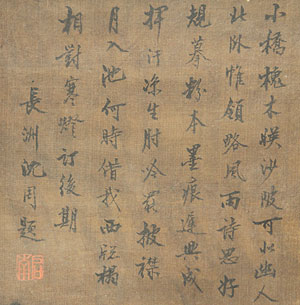 小橋槐木映沙陂可㠯幽人
此臥惟領略風雨詩思好
規摹粉本墨痕運興成
揮汗涼生肘冷罷披襟
月入池何時借我西窓榻
相對寒燈訂後期
長洲沈周題